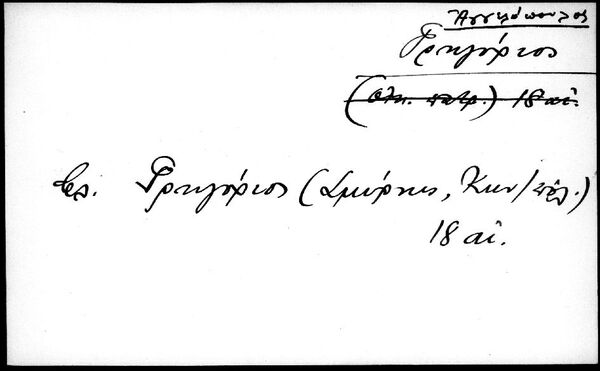 Ἀγγελόπουλος
Γρηγόριος
(Οἰκ. πατρ.) 18 αἰ.
βλ. Γρηγόριος (Σμύρνης, Κων/πόλ.)
18 αἰ.